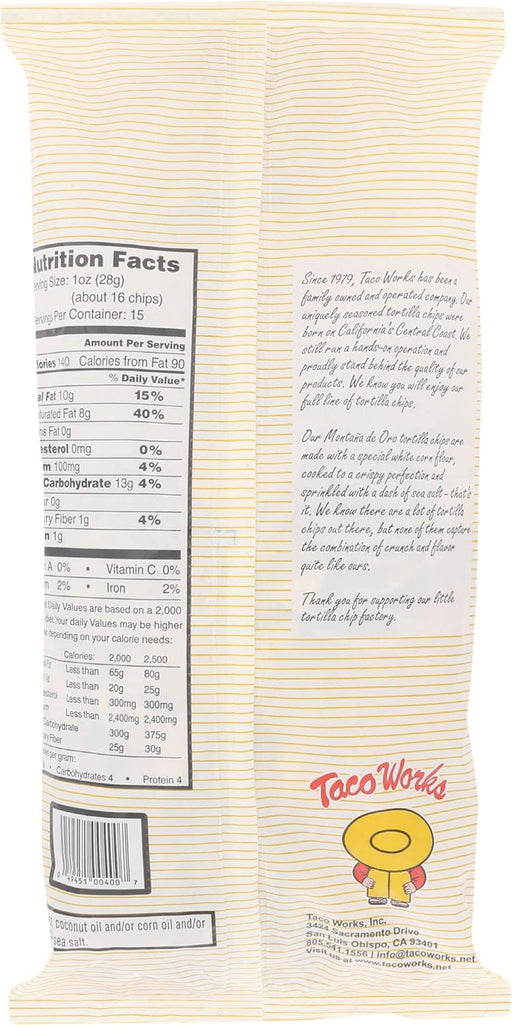 Nutrition Facts
Serving Size: 1oz (28g)
(about 16 chips)
Servings Per Container: 15
Amount Per Serving
lories 140 Calories from Fat 90
% Daily Value*
al Fat 10g 15%
turated Fat 8g 40%
ns Fat 0g
esterol 0mg 0%
m 100mg 4%
Carbohydrate 13g 4%
ar 0g
ry Fiber 1g 4%
n 1g
A 0% • Vitamin C 0%
m 2% • Iron 2%
Daily Values are based on a 2,000
diet. Your daily Values may be higher
er depending on your calorie needs:
Calories: 2,000 2,500
Fat Less than 65g 80g
Fat Less than 20g 25g
esterol Less than 300mg 300mg
um Less than 2,400mg 2,400mg
Carbohydrate 300g 375g
ry Fiber 25g 30g
per gram:
• Carbohydrates 4 • Protein 4
0 49451 00400 7
coconut oil and/or corn oil and/or
sea salt.
Since 1979, Taco Works has been a
family owned and operated company. Our
uniquely seasoned tortilla chips were
born on California's Central Coast. We
still run a hands-on operation and
proudly stand behind the quality of our
products. We know you will enjoy our
full line of tortilla chips.
Our Montaña de Oro tortilla chips are
made with a special white corn flour,
cooked to a crispy perfection and
sprinkled with a dash of sea salt - that's
it. We know there are a lot of tortilla
chips out there, but none of them capture
the combination of crunch and flavor
quite like ours.
Thank you for supporting our little
tortilla chip factory.
Taco Works
Taco Works, Inc.
3424 Sacramento Drive
San Luis Obispo, CA 93401
805.541.1556 | info@tacoworks.net
Visit us at www.tacoworks.net